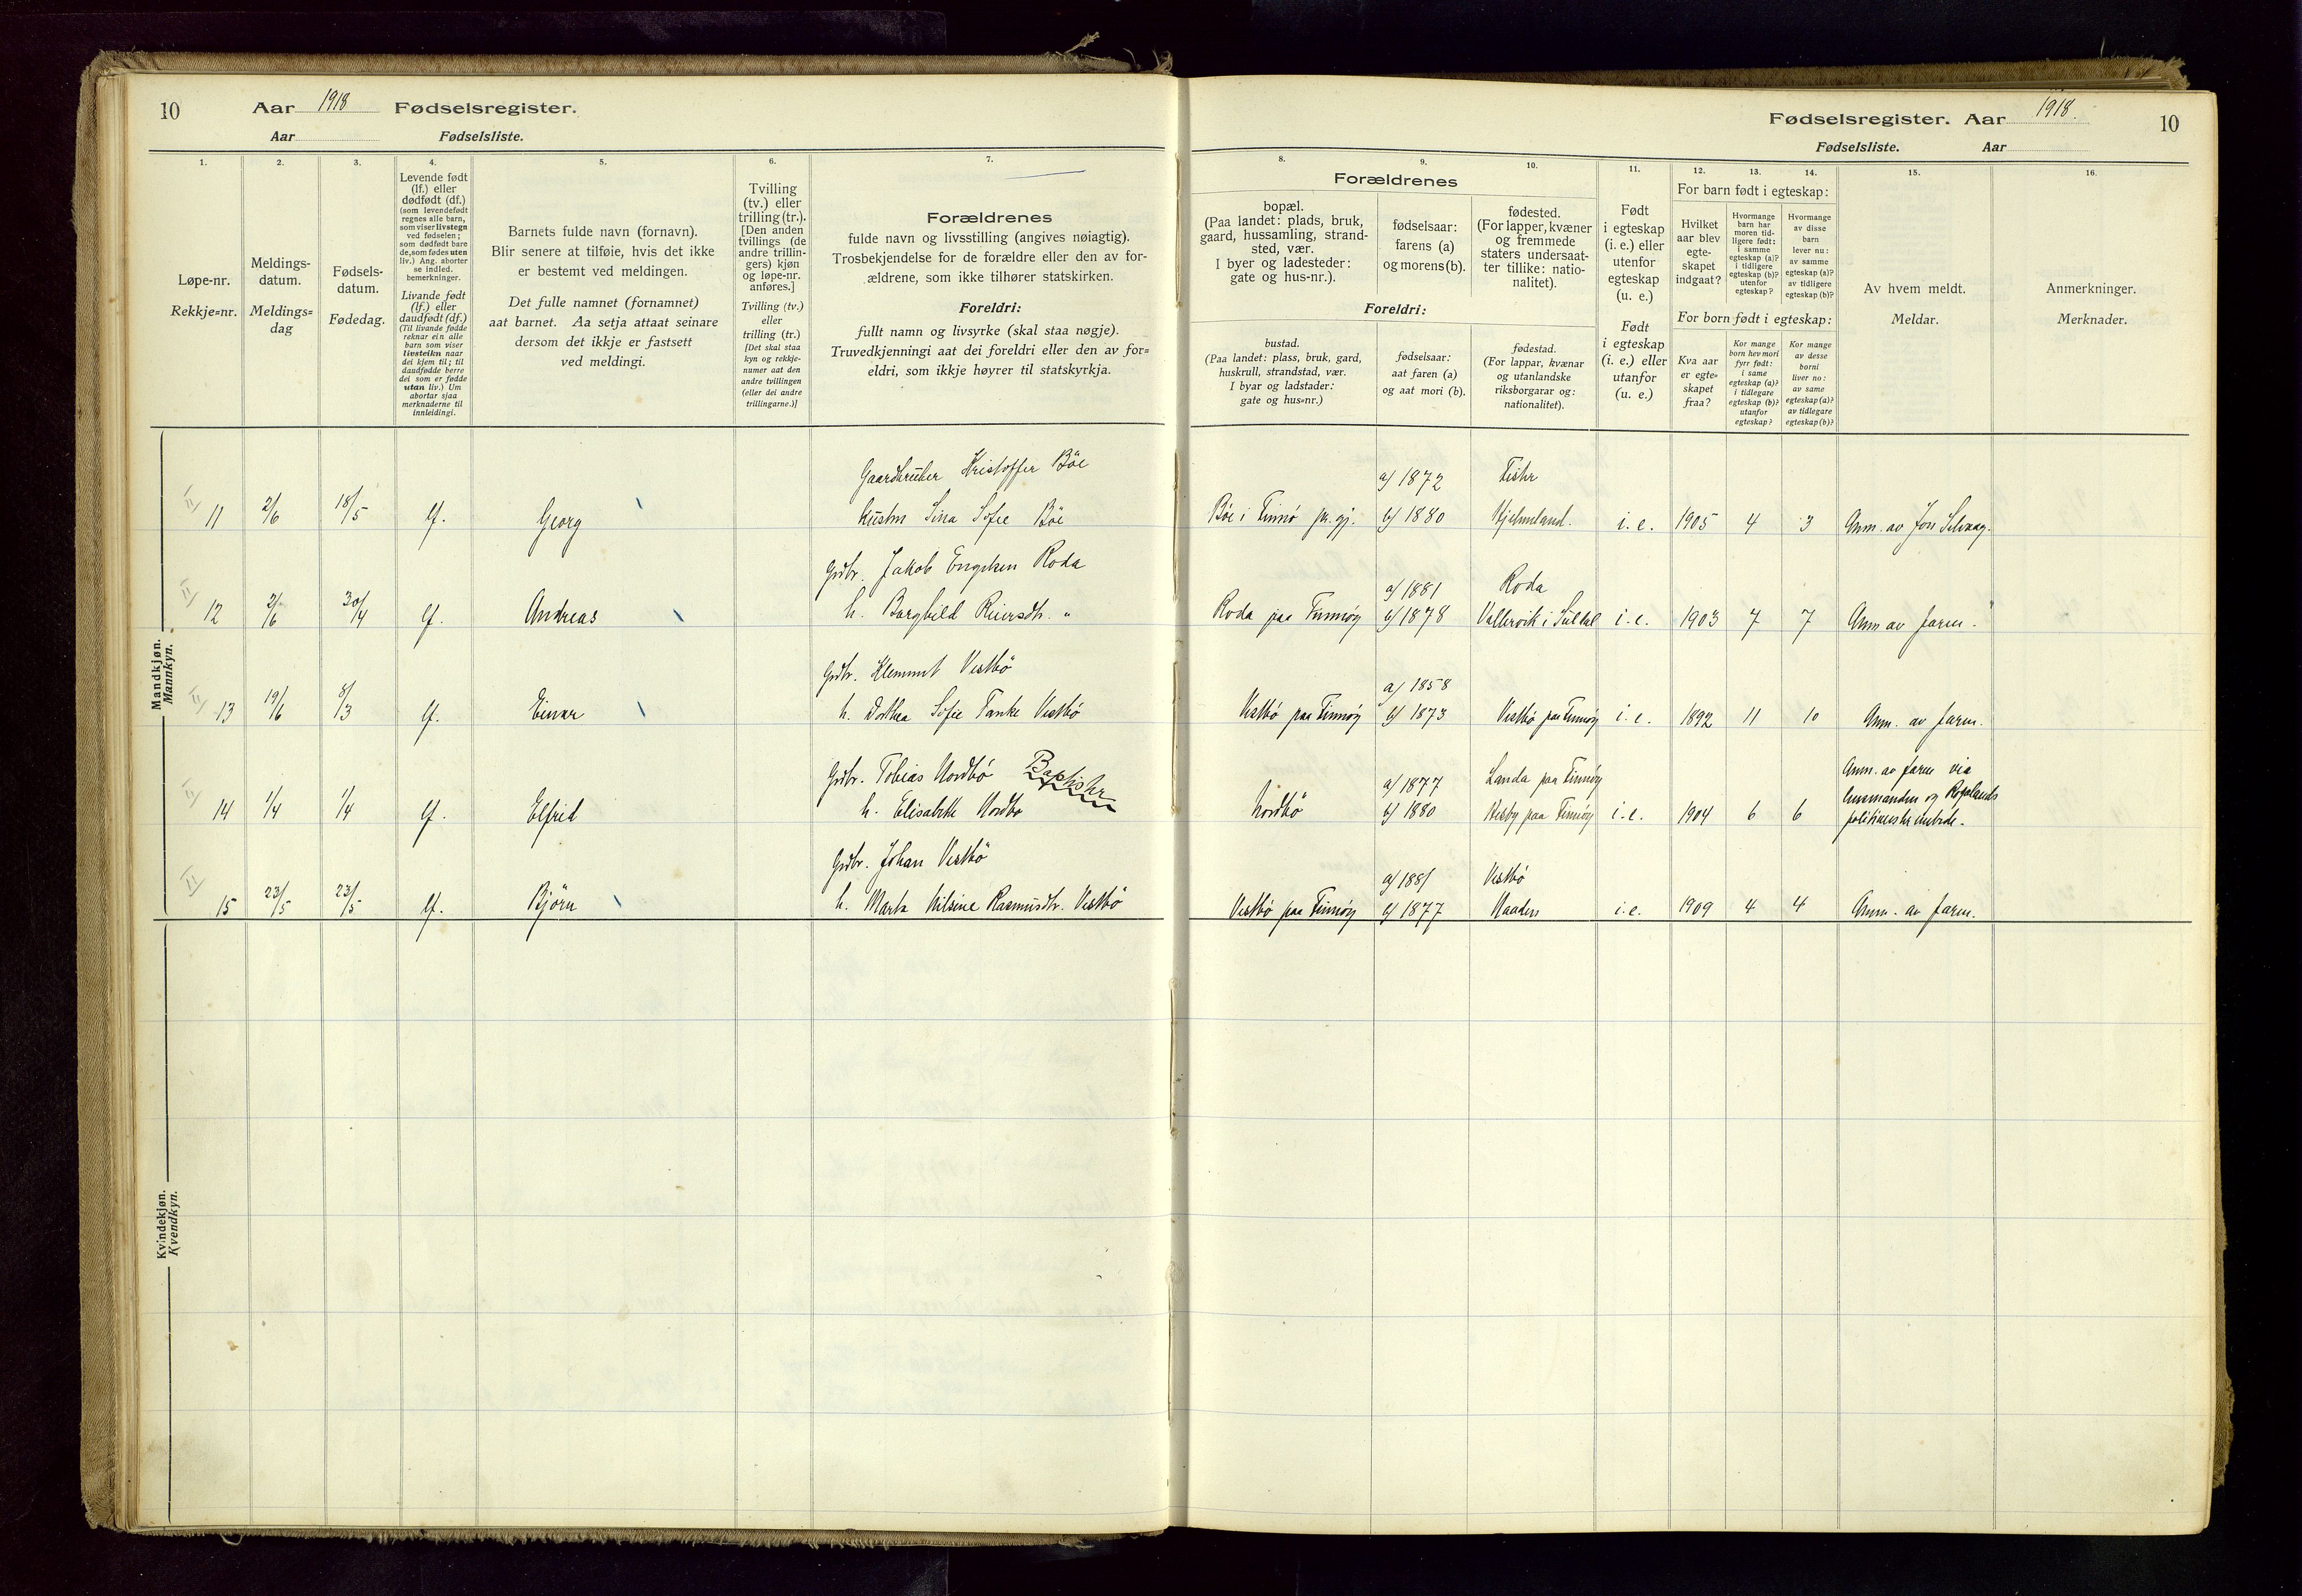 10 Aar 1918 Fødselsregister.
Aar Fødselsliste.
1.
Løpe-nr.
Rekkje=nr.
2.
Meldings-
datum.
Meldings=
dag
3.
Fødsels-
datum.
Fødedag.
4.
Levende født
(lf.) eller
dødfødt (df.)
(som levendefødt
regnes alle barn,
som viser livstegn
ved fødselen;
som dødfødt bare
de, som fødes uten
liv.) Ang. aborter
se indled.
bemerkninger.
Livande født
(lf.) eller
daudfødt (df.)
(Til livande fødde
reknar ein alle
barn som viser
livsteikn naar
dei kjem til; til
daudfødde berre
dei som er fødde
utan liv.) Um
abortar sjaa
merknaderne til
innleidingi.
5.
Barnets fulde navn (fornavn).
Blir senere at tilføie, hvis det ikke
er bestemt ved meldingen.
Det fulle namnet (fornamnet)
aat barnet. Aa setja attaat seinare
dersom det ikkje er fastsett
ved meldingi.
6.
Tvilling
(tv.) eller
trilling (tr.).
[Den anden
tvillings (de
andre trillin-
gers) kjøn
og løpe-nr.
anføres.]
Tvilling (tv.)
eller
trilling (tr.)
[Det skal staa
kyn og rekkje-
numer aat den
andre tvillingen
(eller dei andre
trillingarne.)]
7.
Forældrenes
fulde navn og livsstilling (angives nøiagtig).
Trosbekjendelse for de forældre eller den av for-
ældrene, som ikke tilhører statskirken.
Foreldri:
fullt namn og livsyrke (skal staa nøgje).
Truvedkjenningi aat dei foreldri eller den av for=
eldri, som ikkje høyrer til statskyrkja.
Mandkjøn.
Mannkyn.
Gaardbruker Kristoffer Bøe
11 2/6 18/5 lf. Georg hustru Sina Sofie Bøe
Grdbr. Jakob Roda
12 2/6 30/4 lf. Andreas h. Borghild Reiersdtr. "
Grdbr. Klemmet Vestbö
13 19/6 8/3 lf. Einar h. Dorthea Sofie Tanke Vestbö
Grdbr. Tobias Nordbö Baptister
14 1/4 1/4 lf. Elfrid h. Elisabeth Nordbö
Grdbr. Johan Vestbö
15 23/5 23/5 lf. Björn h. Marta Nilsine Rasmusdtr. Vestbö
Kvindekjøn.
Kvendkyn.
Fødselsregister. Aar 1918. 10
Fødselsliste. Aar
8.
Forældrenes
bopæl.
(Paa landet: plads, bruk,
gaard, hussamling, strand-
sted, vær.
I byer og ladesteder:
gate og hus-nr.).
Foreldri:
bustad.
(Paa landet: plass, bruk, gard,
huskrull, strandstad, vær.
I byar og ladstader:
gate og hus=nr.)
9.
fødselsaar:
farens (a)
og morens (b).
fødselsaar:
aat faren (a)
og aat mori (b).
10.
fødested.
(For lapper, kvæner
og fremmede
staters undersaat-
ter tillike: natio-
nalitet).
fødestad.
(For lappar, kvænar
og utanlandske
riksborgarar og:
nationalitet).
11.
Født
i egteskap
(i. e.) eller
utenfor
egteskap
(u. e.)
Født
i egteskap
(i. e.) eller
utanfor
(u. e.)
12. 13. 14.
For barn født i egteskap:
Hvilket
aar blev
egte-
skapet
indgaat?
Hvormange
barn har
moren tid-
ligere født:
i samme
egteskap (a)?
i tidligere
egteskap (b)?
utenfor
egteskap?
Hvormange
av disse
barn
lever nu:
av samme
egteskap (a)?
av tidligere
egteskap (b)?
For born født i egteskap:
Kva aar
er egte=
skapet
fraa?
Kor mange
born hev mori
fyrr født:
i same
egteskap (a)?
i tidlegare
egteskap (b)?
utanfor
egteskap?
Kor mange
av desse
borni
liver no:
av same
egteskap (a)?
av tidlegare
egteskap (b)?
15.
Av hvem meldt.
Meldar.
16.
Anmerkninger.
Merknader.
a) 1872
Bøe i Finnø pr. gj. b) 1880 Hjelmeland. i. e. 1905 4 3 Anm. av Jon Selvaag.
a) 1881 Roda
Roda paa Finnøy b) 1878 i. e. 1903 7 7 Anm av faren.
a) 1858
Vestbö paa Finnøy b) 1873 Vestbö paa Finnøy i. e. 1892 11 10 Anm. av faren.
a) 1877 Landa paa Finnøy Anm. av faren via
Nordbö b) 1880 Hesby paa Finnøy i. e. 1904 6 6 lensmanden og Rogalands
politimesterembede.
a) 1881 Vestbö
Vestbö paa Finnøy b) 1877 i. e. 1909 4 4 Anm. av faren.